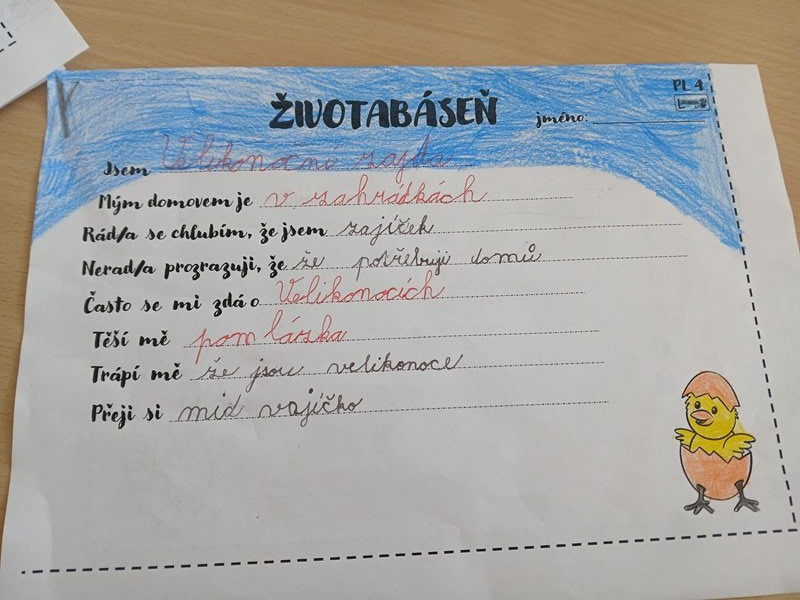 PL 4
ŽIVOTABÁSEŇ jméno:
Jsem Velikonoční zajda
Mým domovem je v zahrádkách
Rád/a se chlubím, že jsem zajíček
Nerad/a prozrazuji, že že potřebuji domů
Často se mi zdá o Velikonocích
Těší mě pomlázka
Trápí mě že jsou velikonoce
Přeji si mid vajíčko